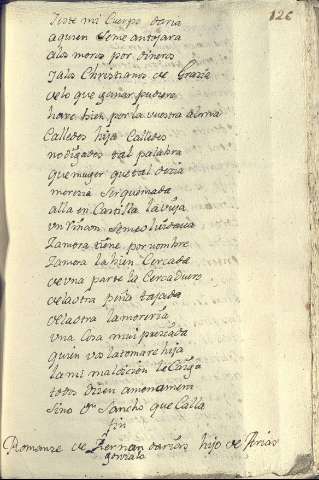 126
este mi cuerpo daria
a quien se me antojara
a los moros por dineros
y a los Christianos de Gracia
de lo que ganar pudiere
hare bien por la vuestra alma
Calledes hija Calledes
no digades tal palabra
que muger que tal dezia
merezia ser quemada
alla en Castilla la vieja
vn Rincon se me oluidaua
Zamora tiene por nombre
Zamora la bien Cercada
de vna parte la Cerca Duero
de la otra peña tajada
de la otra la moreria
vna Cosa mui preziada
quien vos la tomare hija
la mi maldicion le Caiga
todos dizen amen amen
Sino Dn Sancho que Calla
fin
Romanze de Hernan darias hijo de Arias
gonzalo